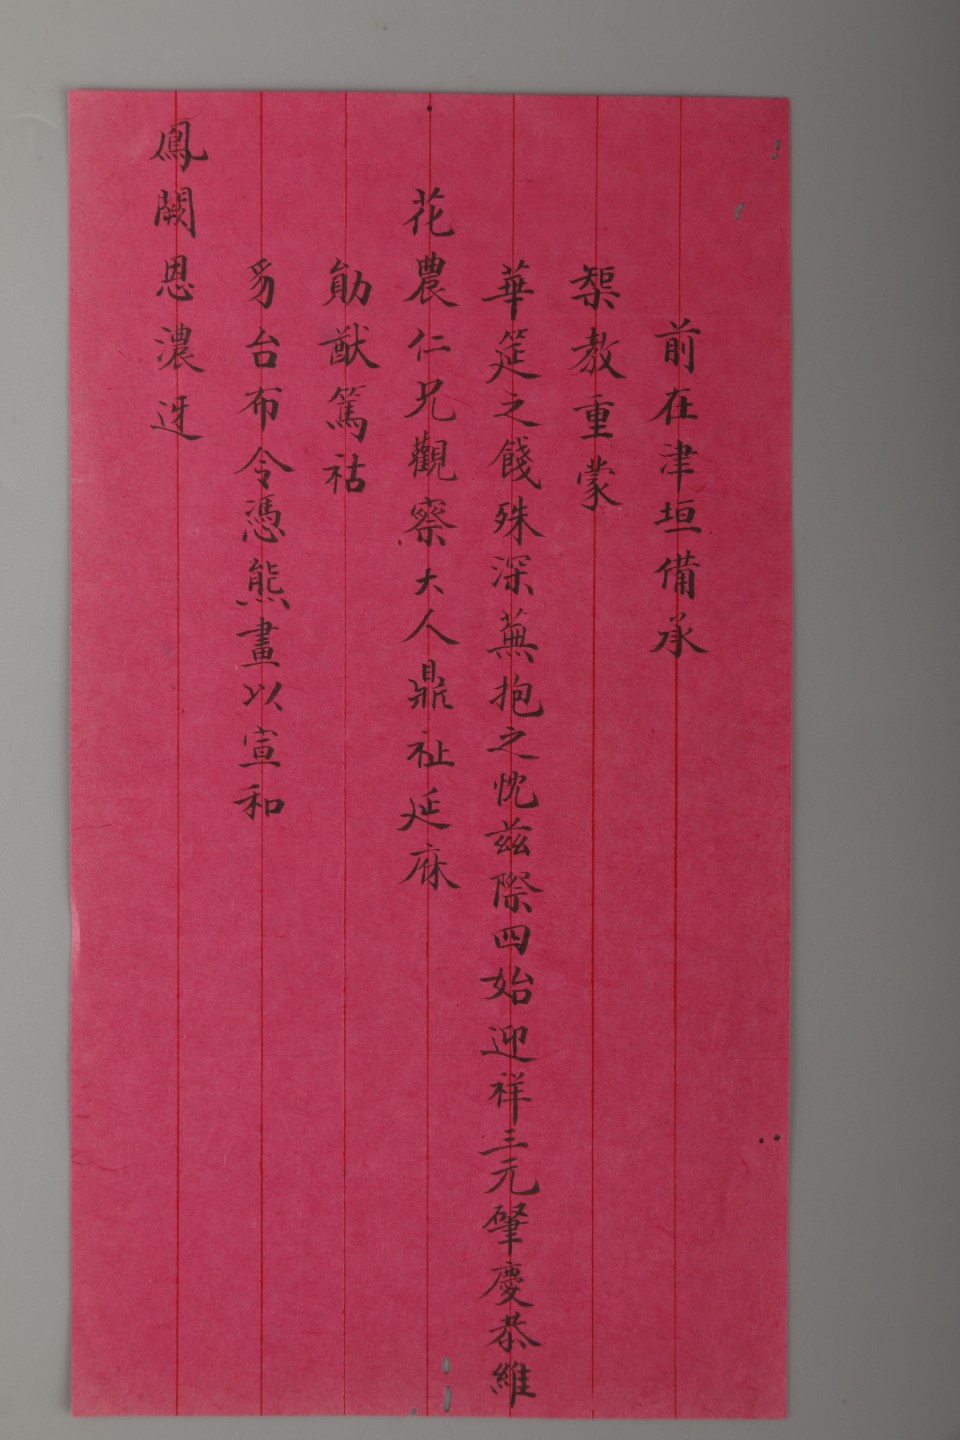 前在津垣備承
榘教重蒙
華筵之餞殊深蕪抱之忱茲際四始迎祥三元肇慶恭維
花農仁兄觀察大人鼎祉延庥
勛猷篤祜
豸台布令憑熊畫以宣和
鳳闕恩濃迓